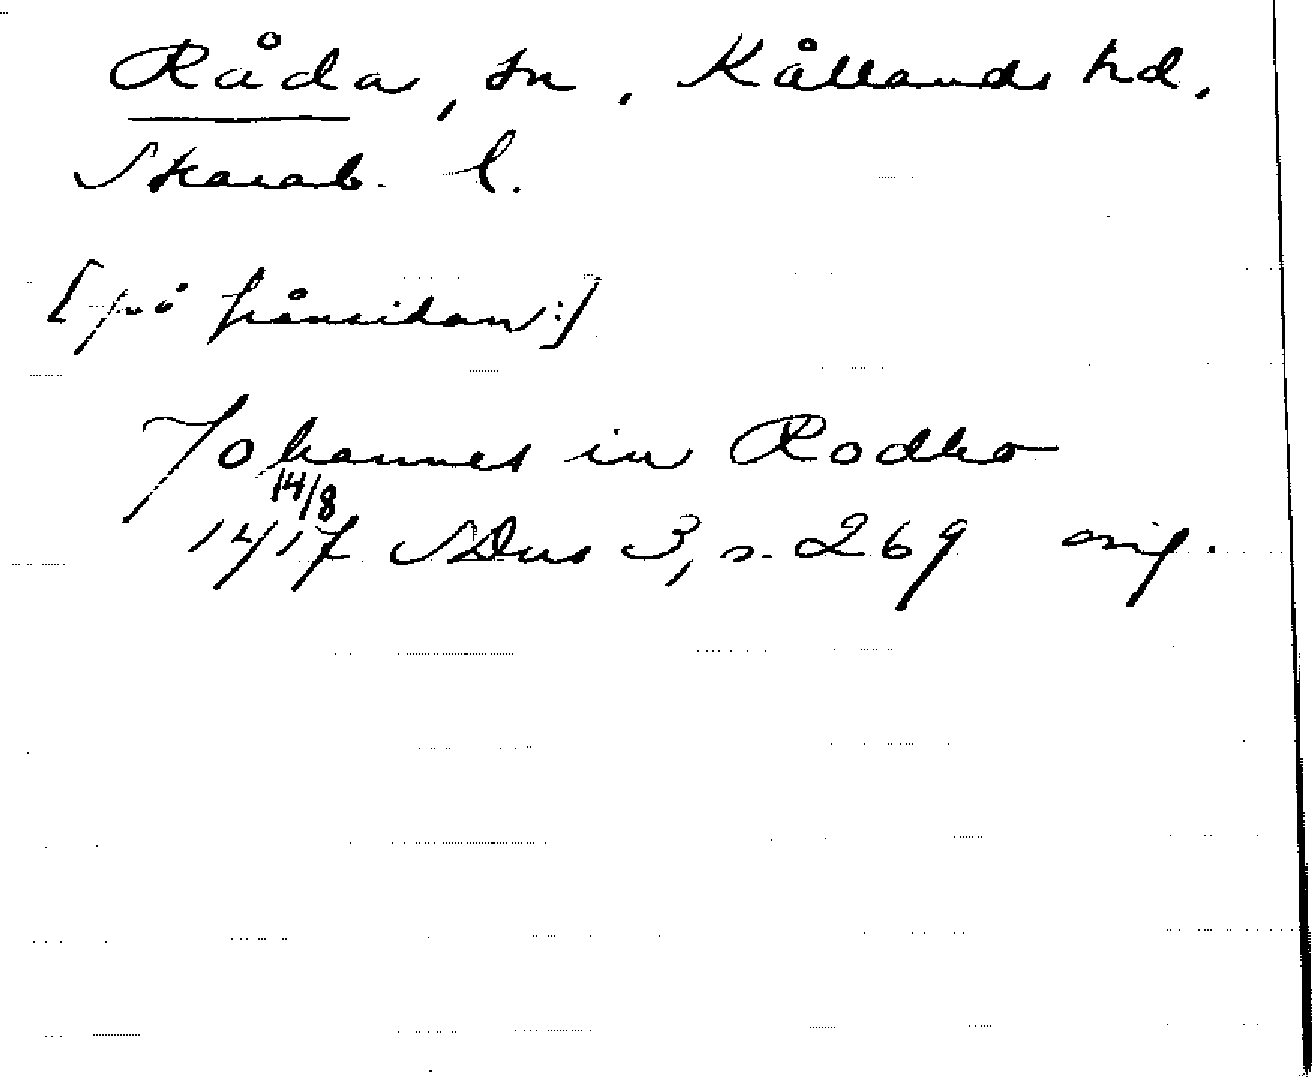 Råda, sn. Kållands hd.
Skarab. l.
[på frånsidan:]
Johannes in Rodho
14/8
1417 SDns 3, s. 269 orig.